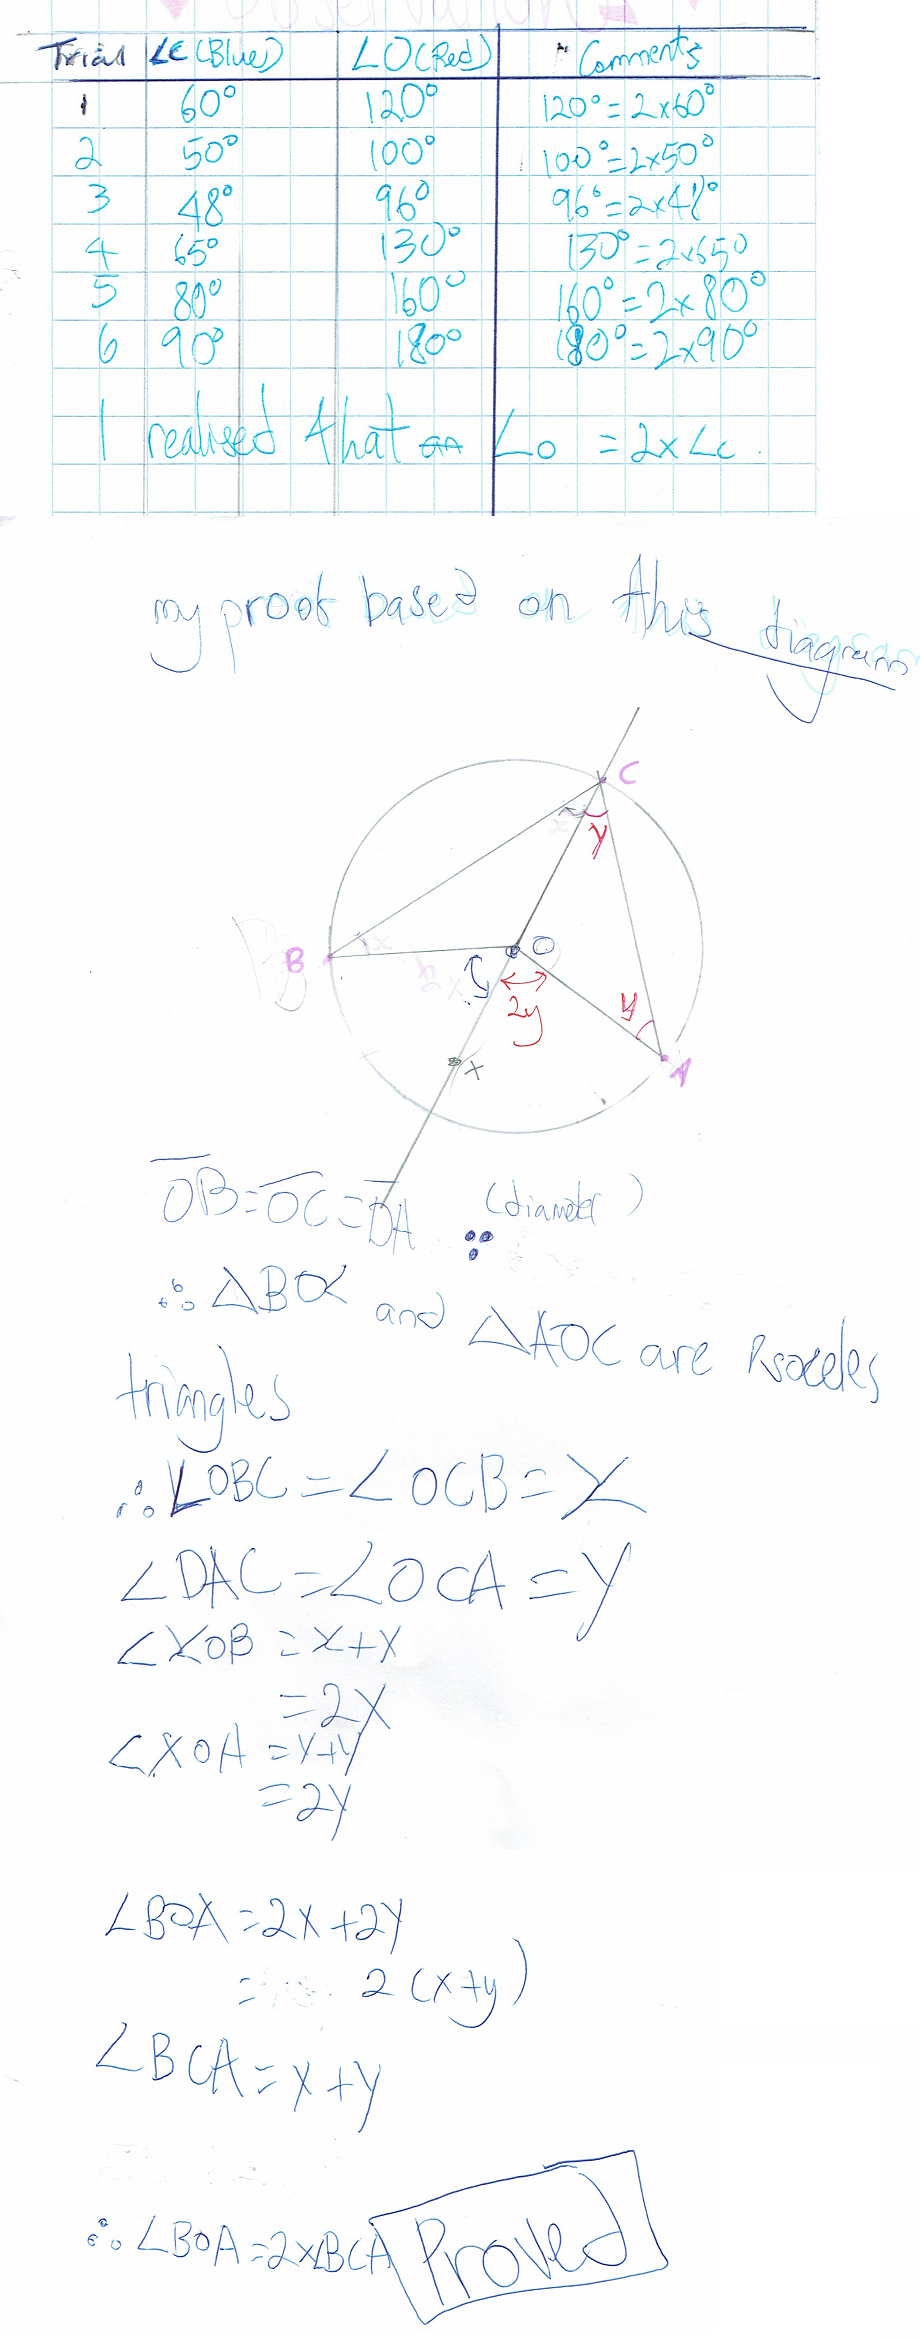 Trial ∠C (Blue) ∠O (Red) Comments
1 60° 120° 120°=2x60°
2 50° 100° 100°=2x50°
3 48° 96° 96°=2x48°
4 65° 130° 130°=2x65°
5 80° 160° 160°=2x80°
6 90° 180° 180°=2x90°
I realised that ∠O = 2x∠C.
my proof based on this diagram
C
x y
B x O
2x 2y y
X A
OB=OC=OA (diameter)
∴ △BOC and △AOC are isoceles
triangles
∴ ∠OBC = ∠OCB = X
∠OAC = ∠OCA = Y
∠XOB = X+X
= 2X
∠XOA = Y+Y
= 2Y
∠BOA = 2X+2Y
= 2(x+y)
∠BCA = X+Y
∴ ∠BOA=2x∠BCA Proved